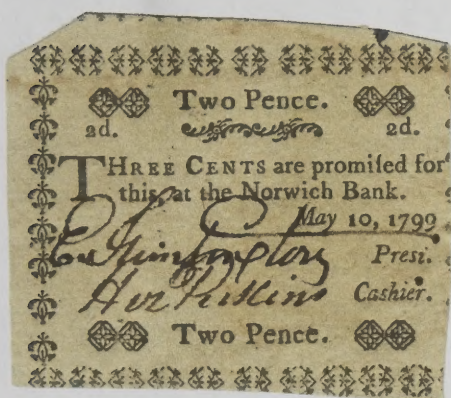 Two Pence.
2d. 2d.
THREE CENTS are promiſed for
this, at the Norwich Bank.
May 10, 1799
Presi.
Cashier.
Two Pence.